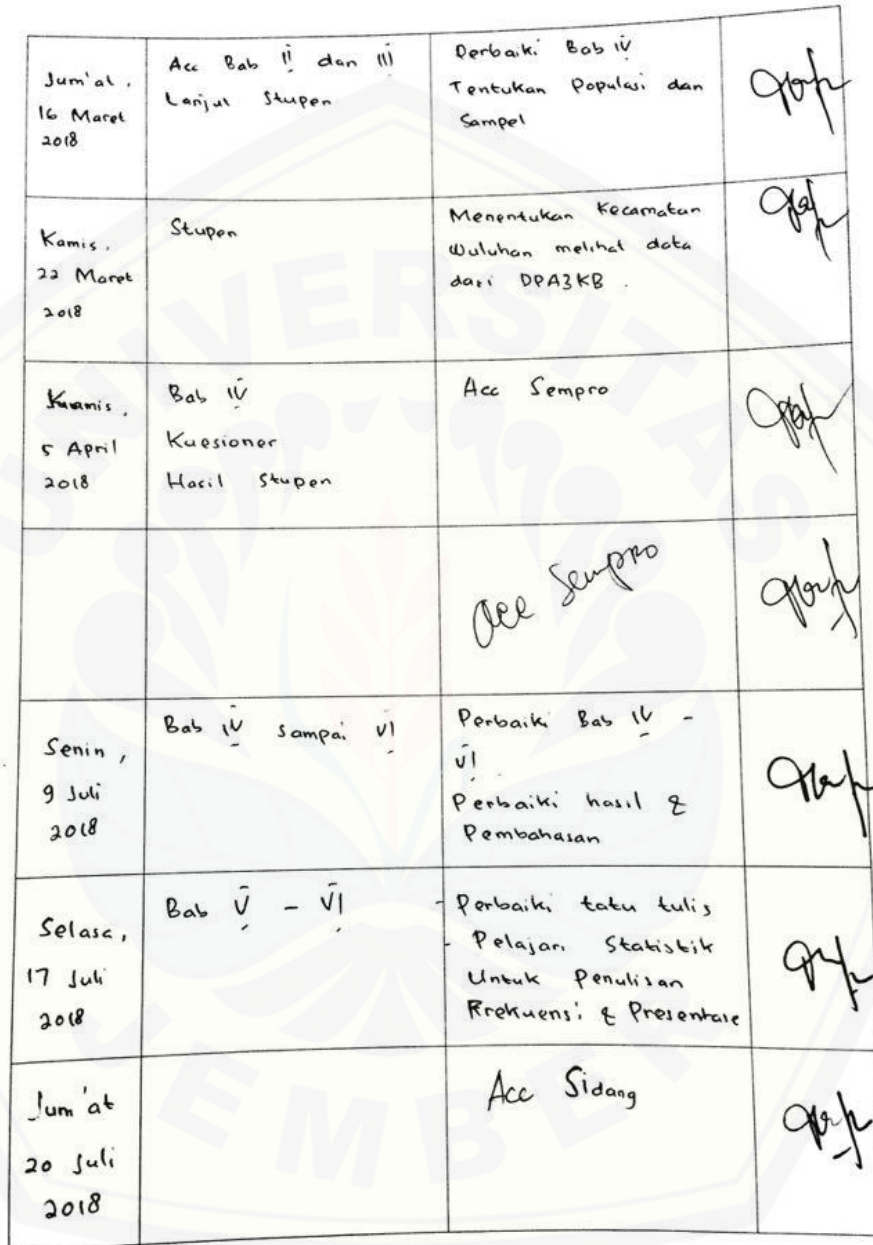 Jum'at,
16 Maret
2018
Acc Bab II dan III
Lanjut Stupen
Perbaiki Bab IV
Tentukan Populasi dan
Sampel
Kamis,
22 Maret
2018
Stupen
Menentukan Kecamatan
Wuluhan melihat data
dari DPA3KB.
Kamis,
5 April
2018
Bab IV
Kuesioner
Hasil Stupen
Acc Sempro
Acc Sempro
Senin,
9 Juli
2018
Bab IV sampai VI
Perbaiki Bab IV -
VI
Perbaiki hasil &
Pembahasan
Selasa,
17 Juli
2018
Bab V - VI
- Perbaiki tata tulis
- Pelajari Statistik
Untuk Penulisan
Frekuensi & Presentase
Jum'at
20 Juli
2018
Acc Sidang
UNIVERSITAS
JEMBER